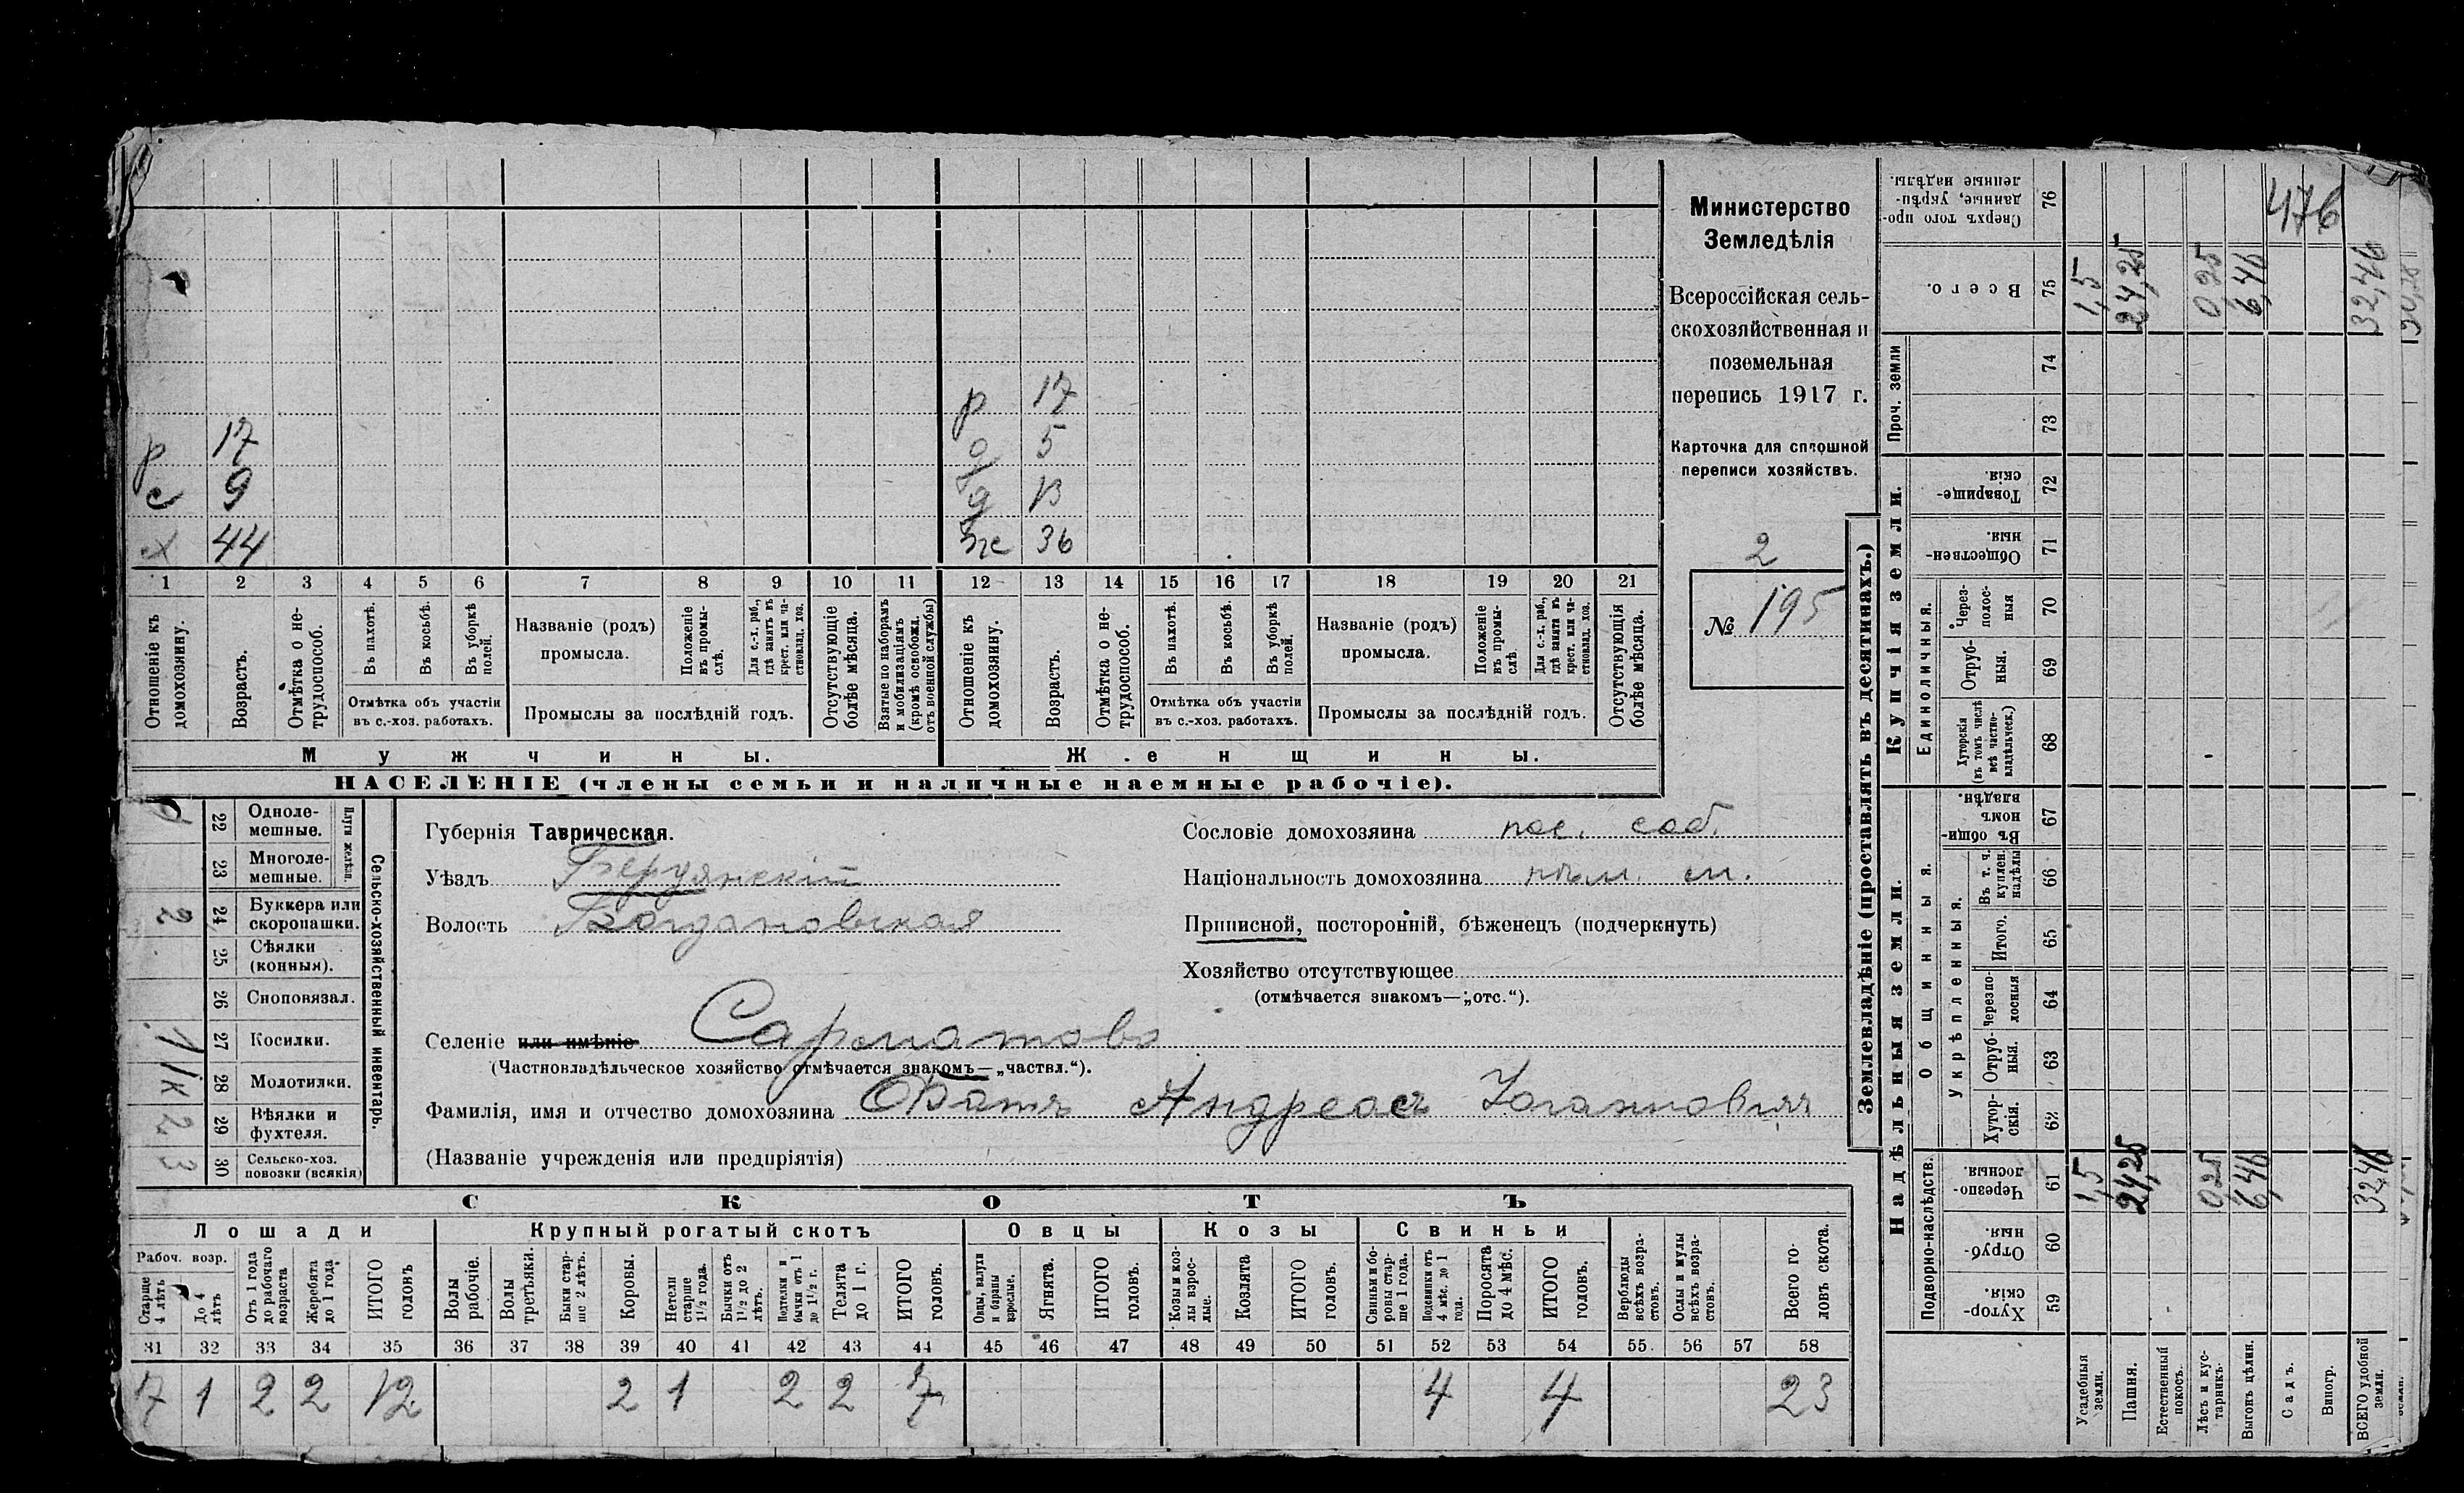 Министерство
Земледѣлія
Всероссійская сель-
скохозяйственная и
поземельная
перепись 1917 г.
Карточка для сплошной
переписи хозяйствъ.
2
№ 195
р 17
р 17 д 5
с 9 д 13
х 44 ж 36
1 2 3 4 5 6 7 8 9 10 11 12 13 14 15 16 17 18 19 20 21
Отношеніе къ домохозяину.
Возрастъ.
Отмѣтка о не-трудоспособ.
Въ пахотѣ.
Въ косьбѣ.
Въ уборкѣ полей.
Отмѣтка объ участіи въ с.-хоз. работахъ.
Названіе (родъ) промысла.
Положеніе въ промы-слѣ.
Для с.-х. раб., гдѣ занятъ въ крест. или ча-стновлад. хоз.
Промыслы за послѣдній годъ.
Отсутствующіе болѣе мѣсяца.
Взятые по наборамъ и мобилизаціямъ (кромѣ освобожд. отъ военной службы)
Отношеніе къ домохозяину.
Возрастъ.
Отмѣтка о не-трудоспособ.
Въ пахотѣ.
Въ косьбѣ.
Въ уборкѣ полей.
Отмѣтка объ участіи въ с.-хоз. работахъ.
Названіе (родъ) промысла.
Положеніе въ промы-слѣ.
Для с.-х. раб., гдѣ занята въ крест. или ча-стновлад. хоз.
Промыслы за послѣдній годъ.
Отсутствующія болѣе мѣсяца.
Мужчины. Женщины.
НАСЕЛЕНІЕ (члены семьи и наличные наемные рабочіе).
Сельско-хозяйственный инвентарь.
Плуги желѣзн.
22 Одноле-мешные.
23 Многоле-мешные.
2 24 Буккера или скоропашки.
25 Сѣялки (конныя).
26 Сноповязал.
1 27 Косилки.
1/к 28 Молотилки.
2 29 Вѣялки и фухтеля.
3 30 Сельско-хоз. повозки (всякія)
Губернія Таврическая.
Уѣздъ Бердянскій
Волость Богдановская
Сословіе домохозяина пос. соб.
Національность домохозяина нѣм.
Приписной, посторонній, бѣженецъ (подчеркнуть)
Хозяйство отсутствующее
(отмѣчается знакомъ—„отс.“).
Селеніе или имѣніе Сарматово
(Частновладѣльческое хозяйство отмѣчается знакомъ—„частвл.“).
Фамилія, имя и отчество домохозяина Фатъ Андреасъ Іоганновичъ
(Названіе учрежденія или предпріятія)
СКОТЪ
Лошади Крупный рогатый скотъ Овцы Козы Свиньи
Рабоч. возр.
Старше 4 лѣтъ
До 4 лѣтъ
Отъ 1 года до рабочаго возраста
Жеребята до 1 года
ИТОГО головъ
Волы рабочіе.
Волы третьяки.
Быки стар-ше 2 лѣтъ.
Коровы.
Нетели старше 1½ года.
Бычки отъ 1½ до 2 лѣтъ.
Подтелки и бычки отъ 1 до 1½ г.
Телята до 1 г.
ИТОГО головъ.
Овцы, валухи и бараны взрослые.
Ягнята.
ИТОГО головъ.
Козы и коз-лы взрос-лые.
Козлята
ИТОГО головъ.
Свиньи и бо-ровы стар-ше 1 года.
Подсвинки отъ 4 мѣс. до 1 года.
Поросята до 4 мѣс.
ИТОГО головъ.
Верблюды всѣхъ возра-стовъ.
Ослы и мулы всѣхъ возра-стовъ.
Всего го-ловъ скота.
31 32 33 34 35 36 37 38 39 40 41 42 43 44 45 46 47 48 49 50 51 52 53 54 55. 56 57 58
7 1 2 2 12 2 1 2 2 7 4 4 23
Землевладѣніе (проставлять въ десятинахъ.)
Надѣльныя земли.
Купчія земли.
Проч. земли
Подворно-наслѣдств.
Общинныя.
Укрѣпленныя.
Единоличныя.
Хутор-скія. 59
Отруб-ныя. 60
Черезпо-лосныя. 61
Хутор-скія. 62
Отруб-ныя. 63
Черезпо-лосныя 64
Итого. 65
Въ т. ч. куплен. надѣлы 66
Въ общи-номъ владѣн. 67
Хуторскія (въ томъ числѣ всѣ частно-владѣльческ.) 68
Отруб-ныя. 69
Через-полос-ныя 70
Обществен-ныя. 71
Товарище-скія 72
73
74
Всего. 75
Сверхъ того про-данные, укрѣп-ленные надѣлы. 76
Усадебныя земли. 1,5 1,5
Пашня. 24,25 24,25
Естественный покосъ.
Лѣсъ и кус-тарникъ. 0,25 0,25
Выгонъ цѣлин. 6,46 6,46
Садъ.
Виногр.
ВСЕГО удобной земли. 32,46 32,46
476